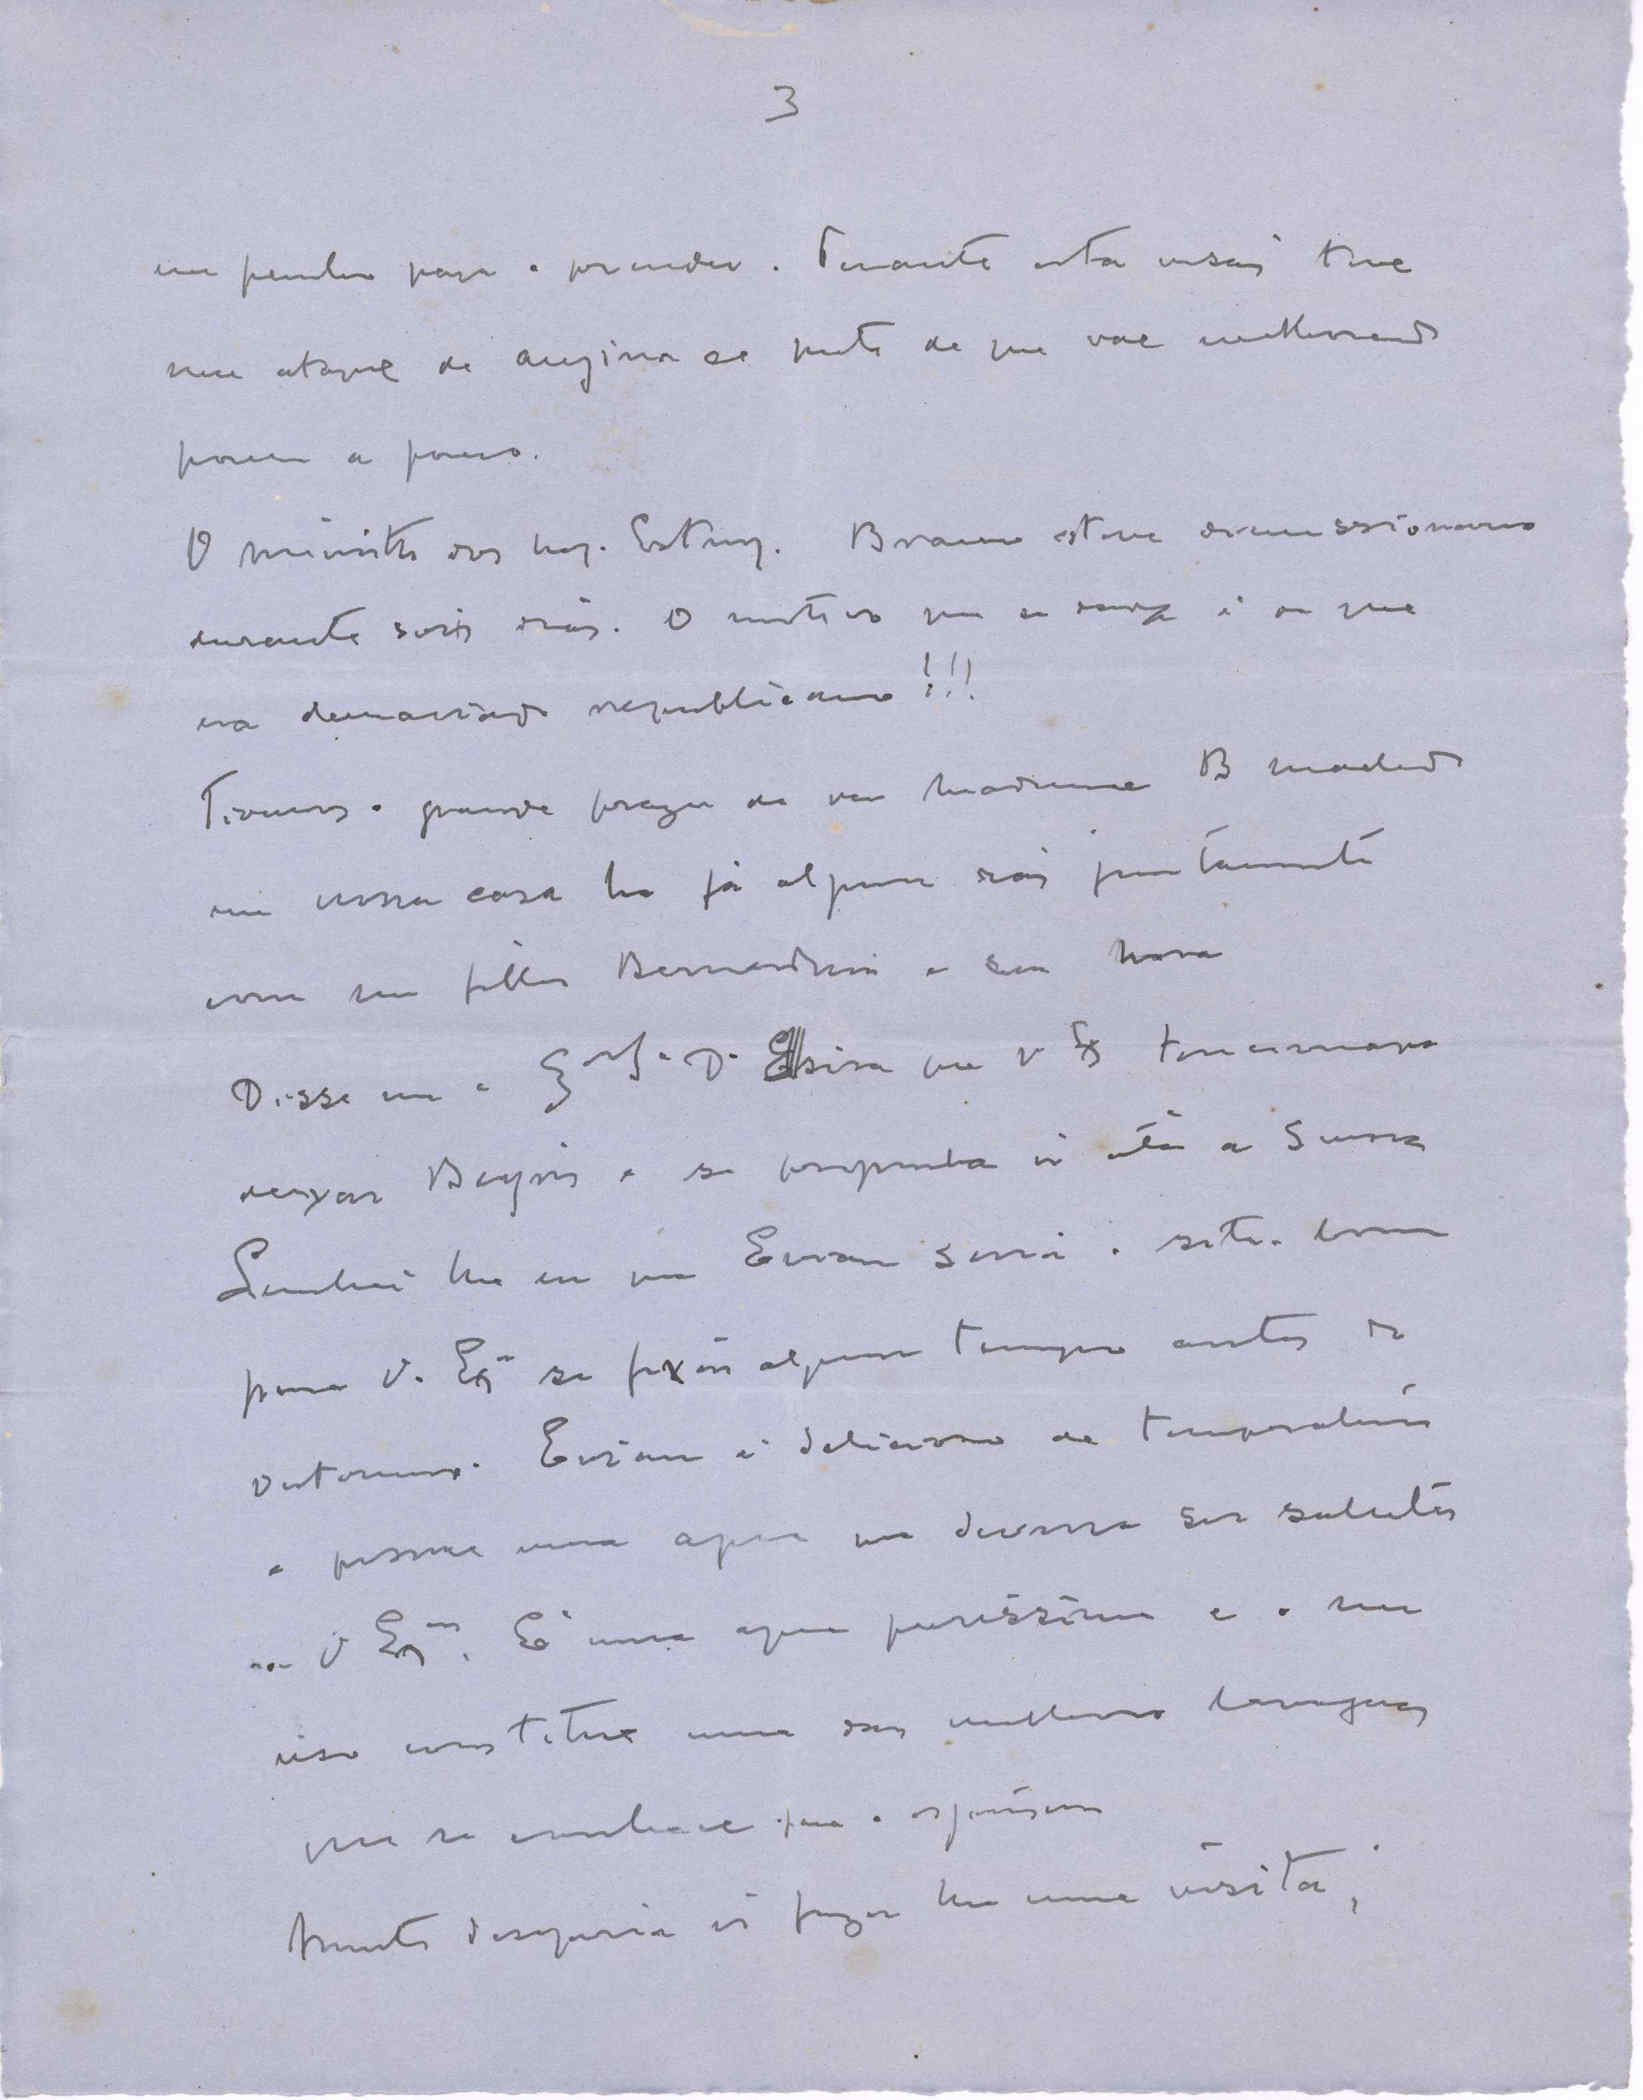 3
um penhor para o prender. Durante esta visão teve
um ataque de angina de peito de que vae melhorando
pouco a pouco.
O ministro dos neg. Estrang. Bramão esteve demissionario
durante seis dias. O motivo que se é de que
era demasiado republicano!!!
Tivemos o grande prazer de ver Madame B Machado
em nossa casa ha já alguns dias juntamente
com seu filho Bernardino e sua nora
Disse me a D. Elzira que V Ex tencionava
deixar Bagnis e se propunha ir até a Suissa
Lembrei lhe eu que Evian seria o sitio bom
para V. Exª se fixar algum tempo antes do
Evian é delicioso de temperatura
e possue uma agua que deveria ser salutar
a V Exª. É uma agua purissima e o seu
uso constitue uma das melhores lavagens
que se conhece para o organismo
Muito desejaria ir fazer lhe uma visita;